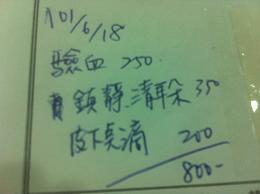 101/6/18
驗血 250.
鎮靜.清耳朵 350
皮下點滴 200
800-